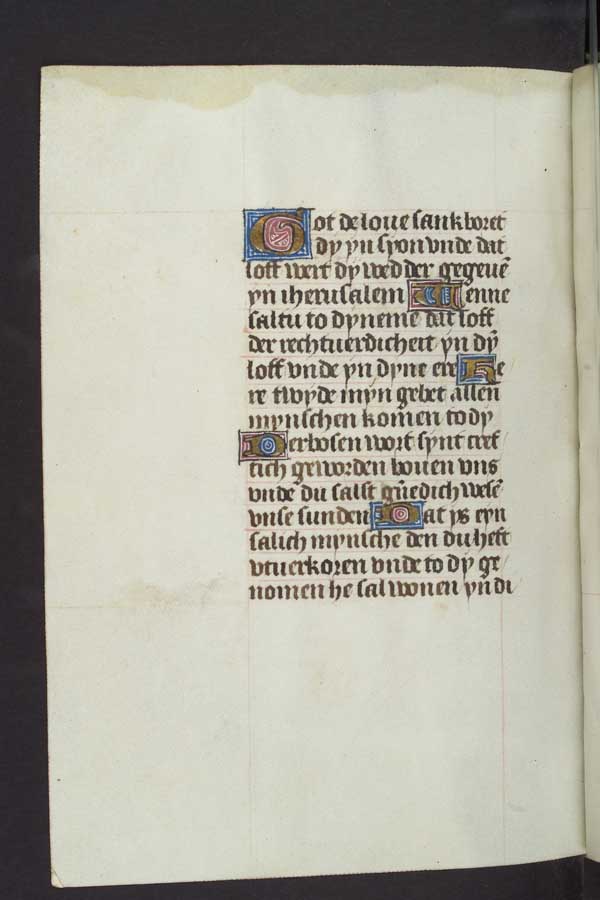 Got de loue sank boret
dy yn syon vnde dat
loff wert dy wedder gegeuē
yn iherusalem Wenne
saltu to dyneme dat loff
der rechtuerdicheit yn dy
loff vnde yn dyne ere He
re twyde myn gebet allen
mynschen komen to dy
Der bosen wort synt cref
tich geworden bouen vns
vnde du salst gnedich wesē
vnse sunden Dat ys eyn
salich mynsche den du heft
vtuerkoren vnde to dy ge
nomen he sal wonen yn di